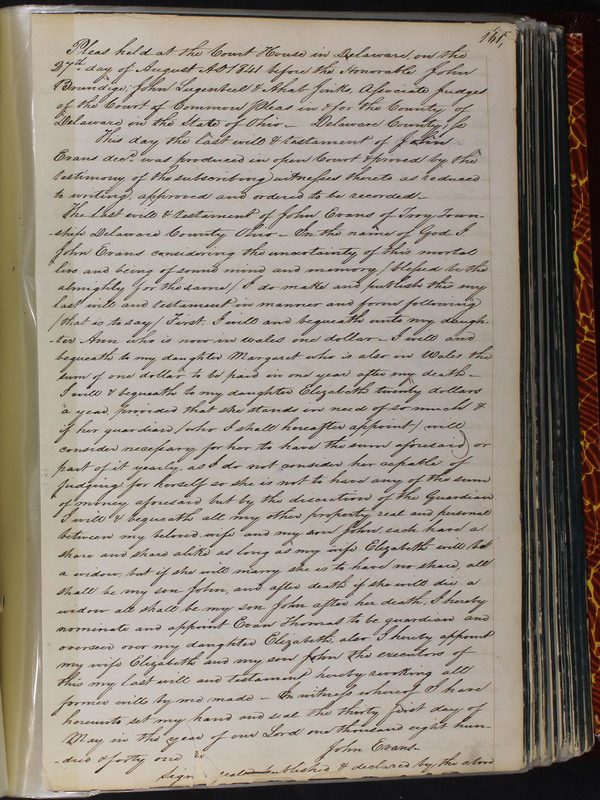 165,
Pleas held at the Court House in Delaware, on the
27th day of August AD 1841 before the Honorable John
Brundige, John Lugenbeel & Ahab Jinks, Associate Judges
of the Court of Common Pleas in & for the County of
Delaware in the State of Ohio — Delaware County Ss
This day the last will & testament of John
Evans decd. was produced in open Court & proved by the
testimony of the subscribing witnesses thereto as reduced
to writing, approved and ordered to be recorded.—
The last will & testament of John Evans of Troy Town-
ship Delaware County Ohio — In the name of God I
John Evans considering the uncertainty of this mortal
live and being of sound mind and memory (blessed be the
almighty for the same) I do make and publish this my
last will and testament in manner and form following
(that is to say) First. I will and bequeath unto my daugh-
-ter Ann who is now in wales one dollar — I will and
bequeath to my daughter Margaret who is also in Wales the
sum of one dollar to be paid in one year after my death —
I will & bequeath to my daughter Elizabeth twenty dollars
a year, provided that she stands in need of so much &
if her guardian (who I shall hereafter appoint) will
consider necessary for her to have the sum aforesaid) or
part of it yearly, as I do not consider her capable of
judging for herself so she is not to have any of the sum
of money aforesaid but by the discretion of the Guardian
I will & bequeath all my other property real and personal
between my beloved wife and my son John, each have a
share and share alike as long as my wife Elizabeth will be
a widow, but if she will marry she is to have no share, all
shall be my son John, and after death if she will die a
widow all shall be my son John after her death, I hereby
nominate and appoint Evan Thomas to be guardian and
overseer over my daughter Elizabeth, also I hereby appoint
my wife Elizabeth and my son John the executors of
this my last will and testament hereby revoking all
former wills by me made — In witness whereof I have
hereunto set my hand and seal the thirty first day of
May in the year of our Lord one thousand eight hun-
-dred & forty one
John Evans
Sign published & declared by the above